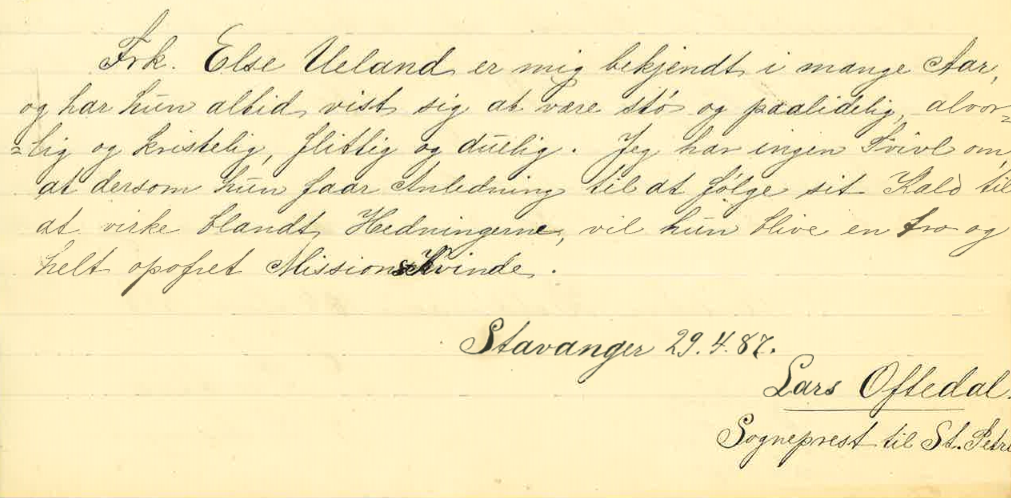 Frk. Else Ueland er mig bekjendt i mange Aar,
og har hun altid vist sig at være stø og paalidelig, alvor=
=lig og kristelig, flittig og duelig. Jeg har ingen Tvivl om,
at dersom hun faar Anledning til at følge sit Kald til
at virke blandt Hedningerne, vil hun blive en tro og
helt opofret Missionskvinde.
Stavanger 29.4.87.
Lars Oftedal.
Sogneprest til St. Petri